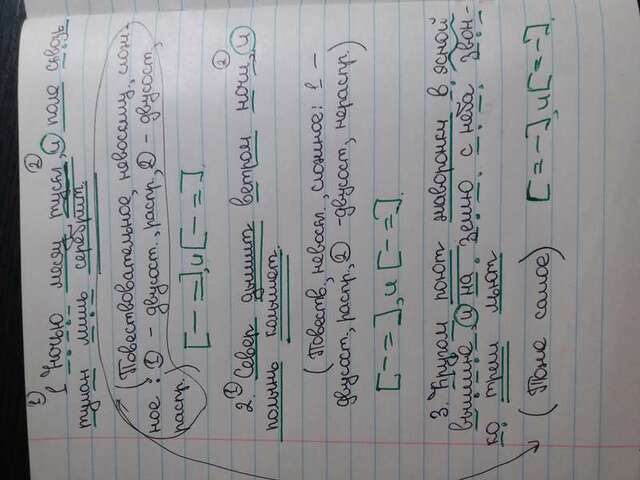 1) 2)
1 Ночью месяц тускл, и поле сквозь
туман лишь серебрит.
(Повествовательное, невоскл, слож-
ное: 1 - двусост., распр, 2 - двусост,
распр.)
[— =], и [— =].
1 2
2. Север дышит ветром ночи, и
полынь колышет.
(Повеств, невоскл., сложное: 1 –
двусост., распр., 2 - двусост, нераспр.)
[— =], и [— =].
3. Кругом поют жаворонки в ясной
вышине, и на землю с неба звон-
ко трели льют
(Тоже самое) [= —], и [= —].